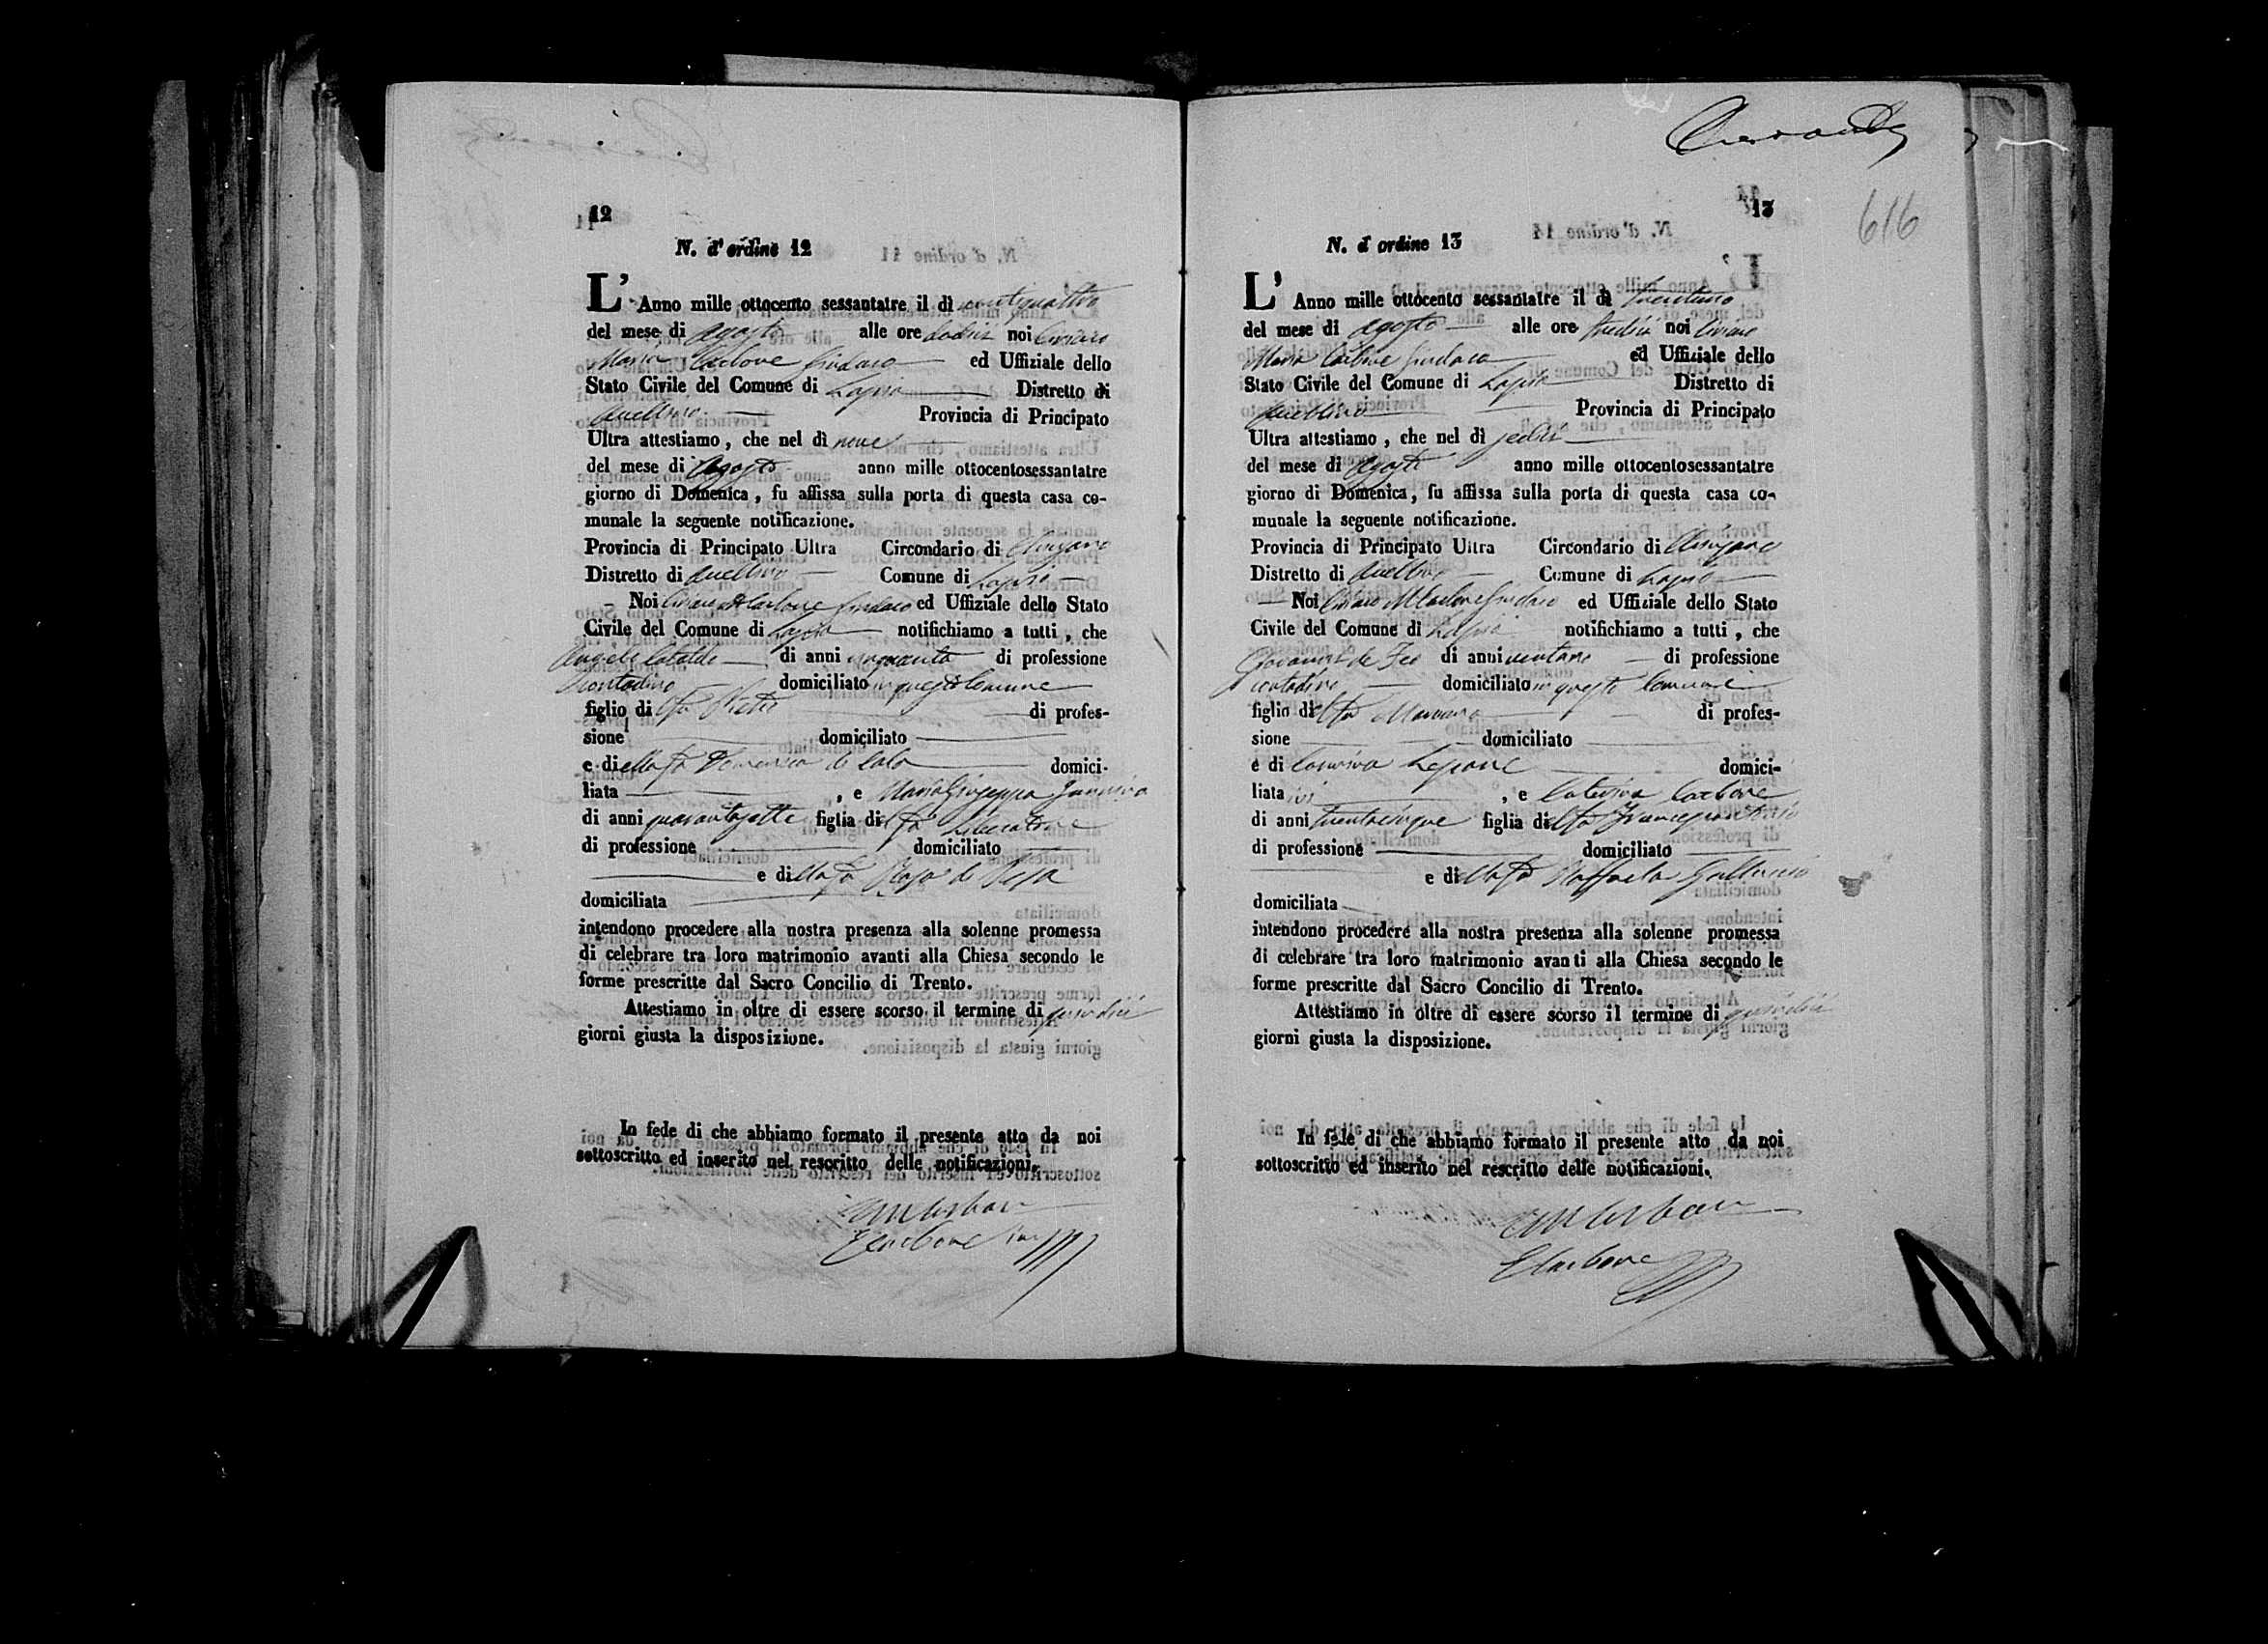 12
N. d'ordine 12
L' Anno mille ottocento sessantatre il dì ventiquattro
del mese di Agosto alle ore dodici noi Ciriaco
Maria Carbone Sindaco ed Uffiziale dello
Stato Civile del Comune di Lapio Distretto di
Avellino Provincia di Principato
Ultra attestiamo, che nel dì nove
del mese di Agosto anno mille ottocentosessantatre
giorno di Domenica, fu affissa sulla porta di questa casa co-
munale la seguente notificazione.
Provincia di Principato Ultra Circondario di Chiusano
Distretto di Avellino Comune di Lapio
Noi Ciriaco M Carbone Sindaco ed Uffiziale dello Stato
Civile del Comune di Lapio notifichiamo a tutti, che
Angelo Cataldo di anni cinquanta di professione
contadino domiciliato in questo Comune
figlio di l fu Pietro di profes-
sione domiciliato
e di ella fu Domenica de Lala domici-
liata , e Maria Giuseppa
di anni quarantasette figlia di l fu Liberatore
di professione domiciliato
e di ella fu Rosa
domiciliata
intendono procedere alla nostra presenza alla solenne promessa
di celebrare tra loro matrimonio avanti alla Chiesa secondo le
forme prescritte dal Sacro Concilio di Trento.
Attestiamo in oltre di essere scorso il termine di quindici
giorni giusta la disposizione.
In fede di che abbiamo formato il presente atto da noi
sottoscritto ed inserito nel rescritto delle notificazioni.
CM Carbone
E Carbone
616
13
N. d ordine 13
L' Anno mille ottocento sessantatre il dì trentuno
del mese di Agosto alle ore tredici noi Ciriaco
Maria Carbone Sindaco ed Uffiziale dello
Stato Civile del Comune di Lapio Distretto di
Avellino Provincia di Principato
Ultra attestiamo, che nel dì sedici
del mese di Agosto anno mille ottocentosessantatre
giorno di Domenica, fu affissa sulla porta di questa casa co-
munale la seguente notificazione.
Provincia di Principato Ultra Circondario di Chiusano
Distretto di Avellino Comune di Lapio
Noi Ciriaco M Carbone Sindaco ed Uffiziale dello Stato
Civile del Comune di Lapio notifichiamo a tutti, che
Giovanni de Feo di anni ventuno di professione
contadino domiciliato in questo Comune
figlio di l fu di profes-
sione domiciliato
e di Carmina Lepore domici-
liata ivi , e Caterina Carbone
di anni trentacinque figlia di l fu Francescantonio
di professione domiciliato
e di ella fu Raffaela
domiciliata
intendono procedere alla nostra presenza alla solenne promessa
di celebrare tra loro matrimonio avanti alla Chiesa secondo le
forme prescritte dal Sacro Concilio di Trento.
Attestiamo in oltre di essere scorso il termine di quindici
giorni giusta la disposizione.
In fede di che abbiamo formato il presente atto da noi
sottoscritto ed inserito nel rescritto delle notificazioni.
CM Carbone
E Carbone